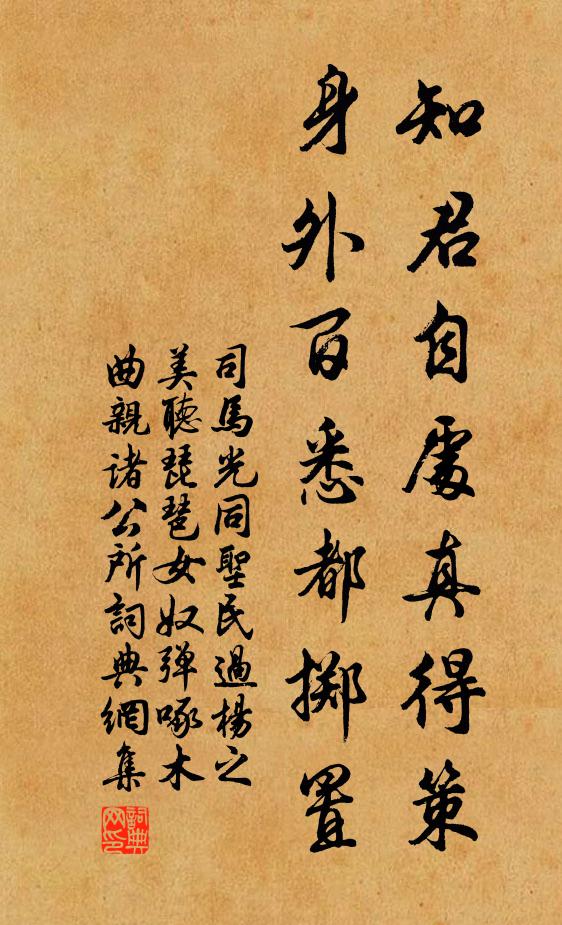 知君自處真得策
身外百悉都擲置
司馬光同聖民過楊之
美聽琵琶女奴弹啄木
曲親诸公所詞典網集
詞典网印